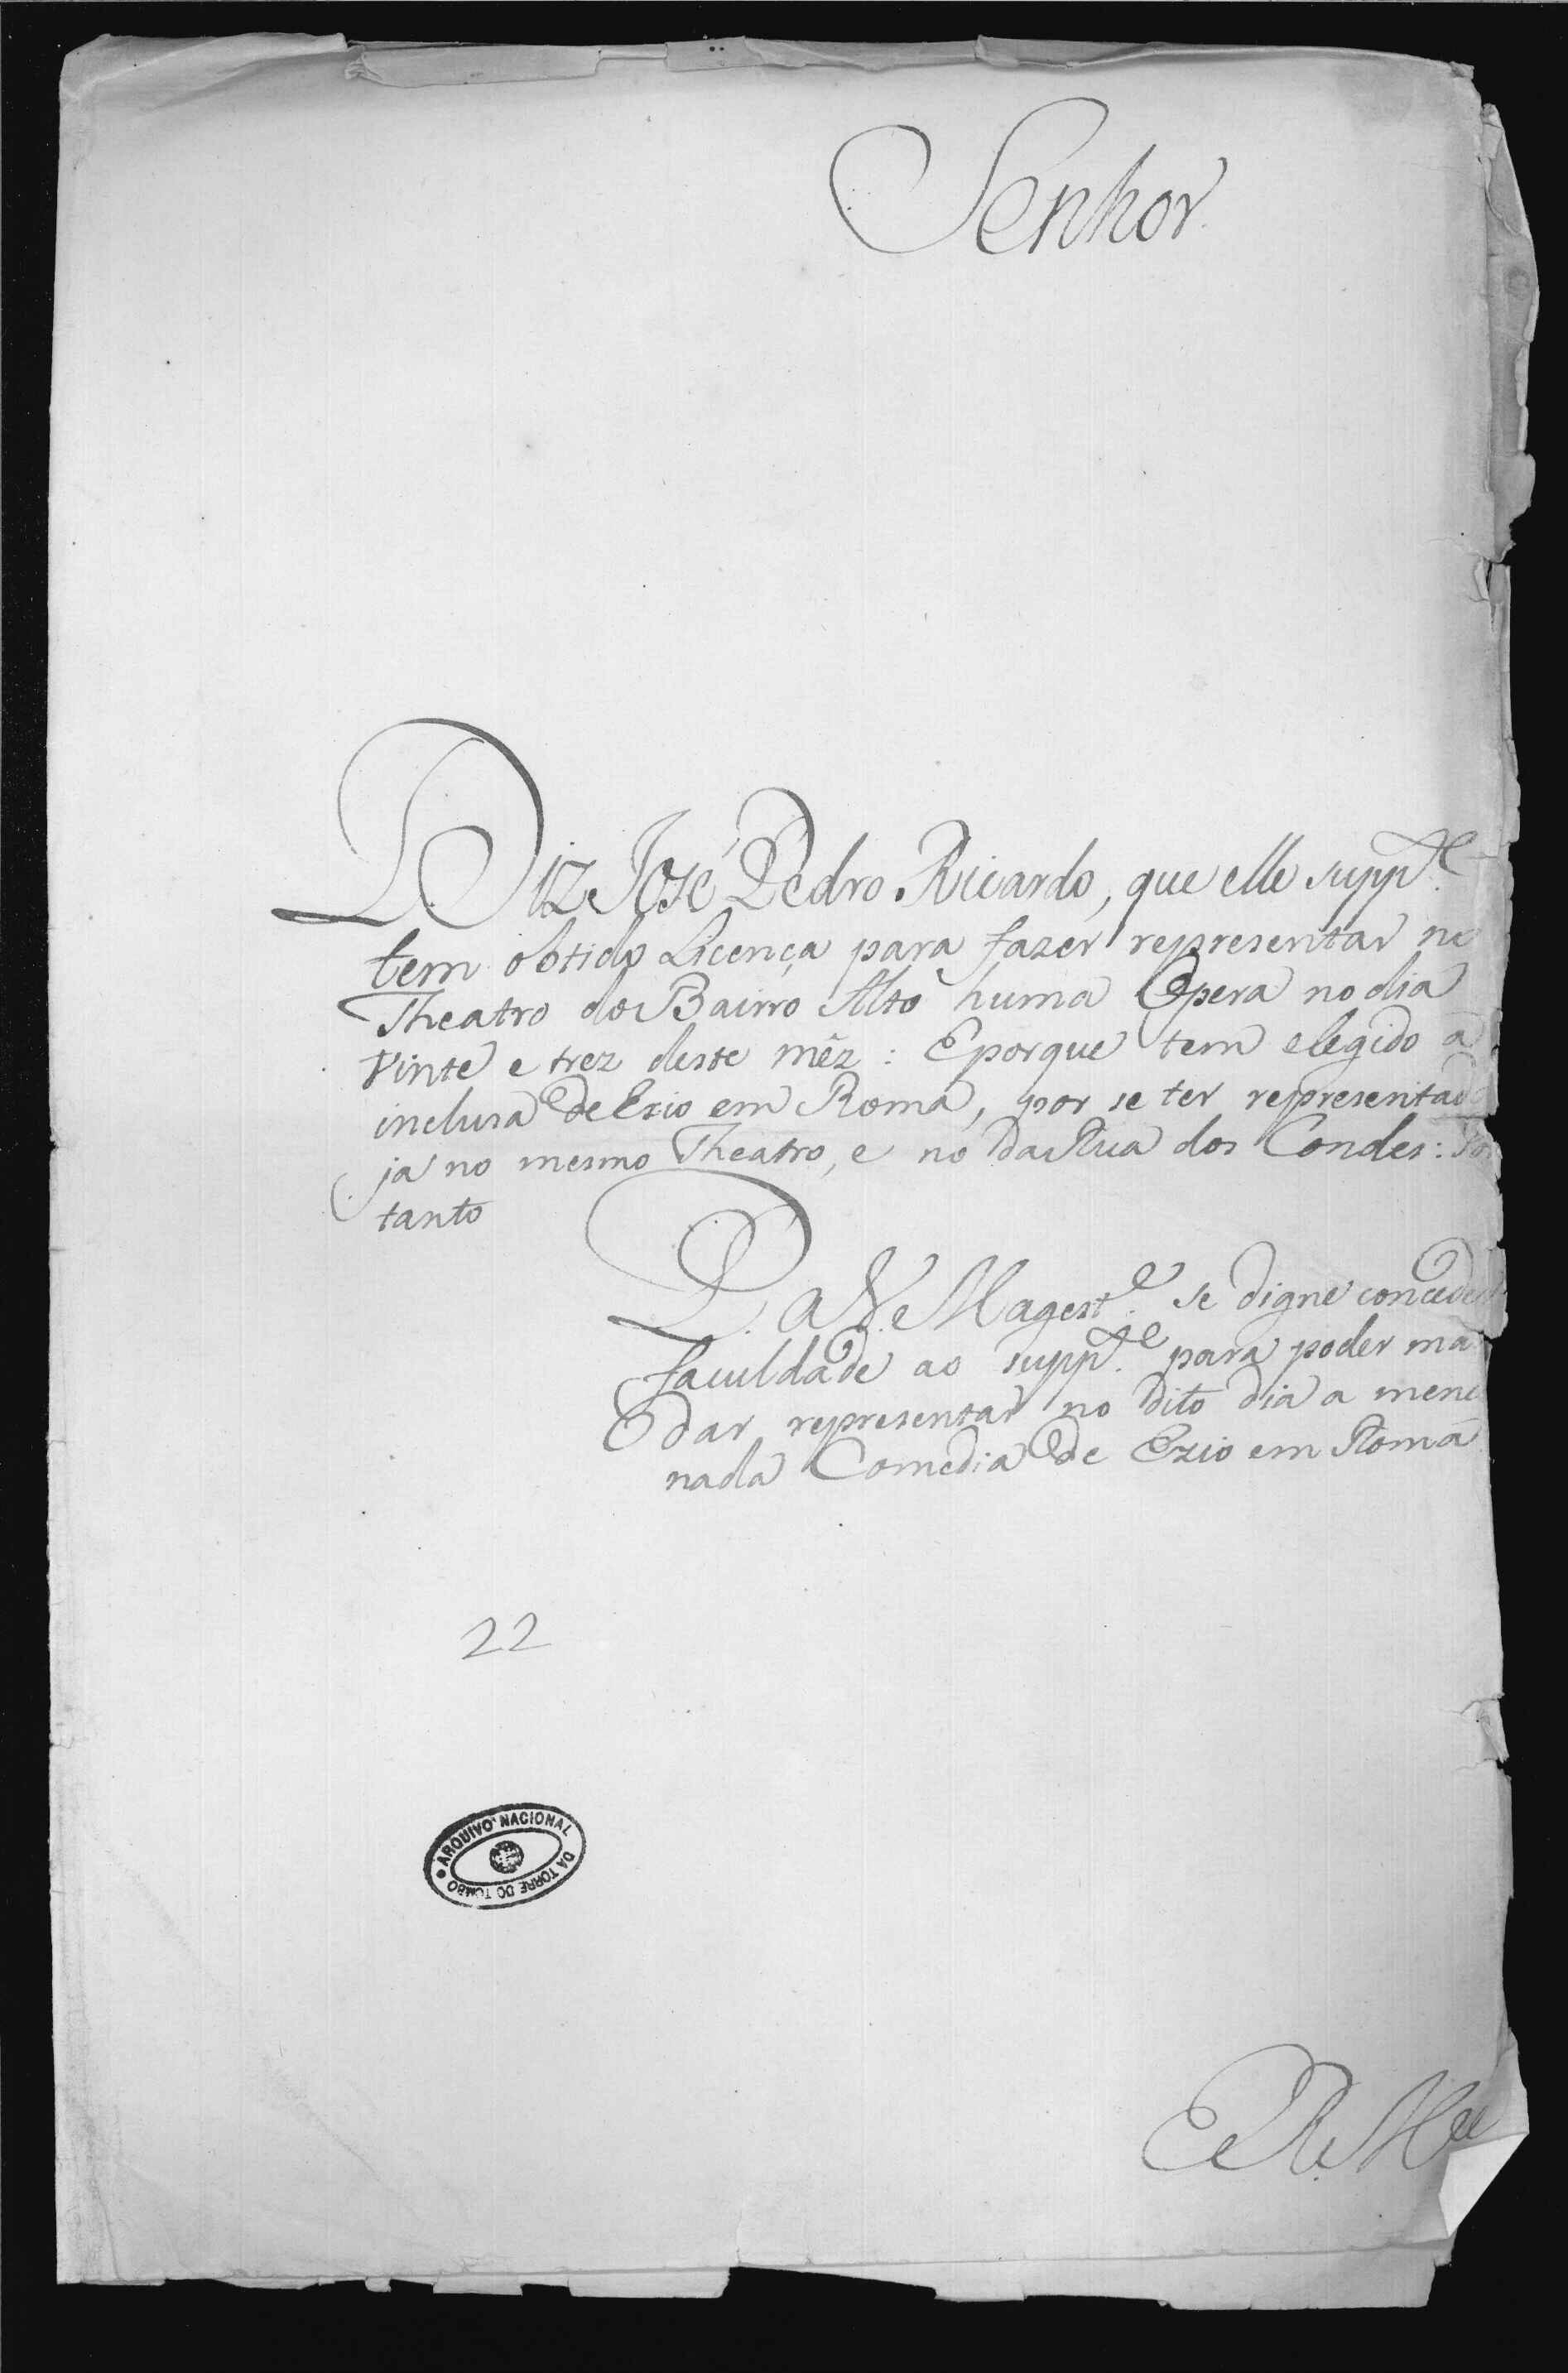 Senhor.
Diz José Pedro Ricardo, que elle supp.te
tem obtido Licença para fazer representar no
Theatro do Bairro Alto huma Opera no dia
vinte e trez deste mêz: E porque tem elegido a
inclusa de Ezio em Roma, por se ter representado
já no mesmo Theatro, e no da Rua dos Condes: Por
tanto
P. a V. Magest.e se digne conceder
faculdade ao supp.te para poder man
dar representar no dito dia a menci
nada Comedia de Ezio em Roma
22
ARQUIVO NACIONAL DA TORRE DO TOMBO
E R. Mce